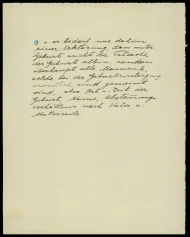 es bedarf
einer Erklärung dass unter
Geburt nicht die Tatsache
der Geburt allein, sondern
überhaupt alle Momente
welche bei der Geburtseintragung
sind, also Ort u. Zeit der
Geburt Name, Abstammungs-
verhältnis nach Vater u.
Mutterseite